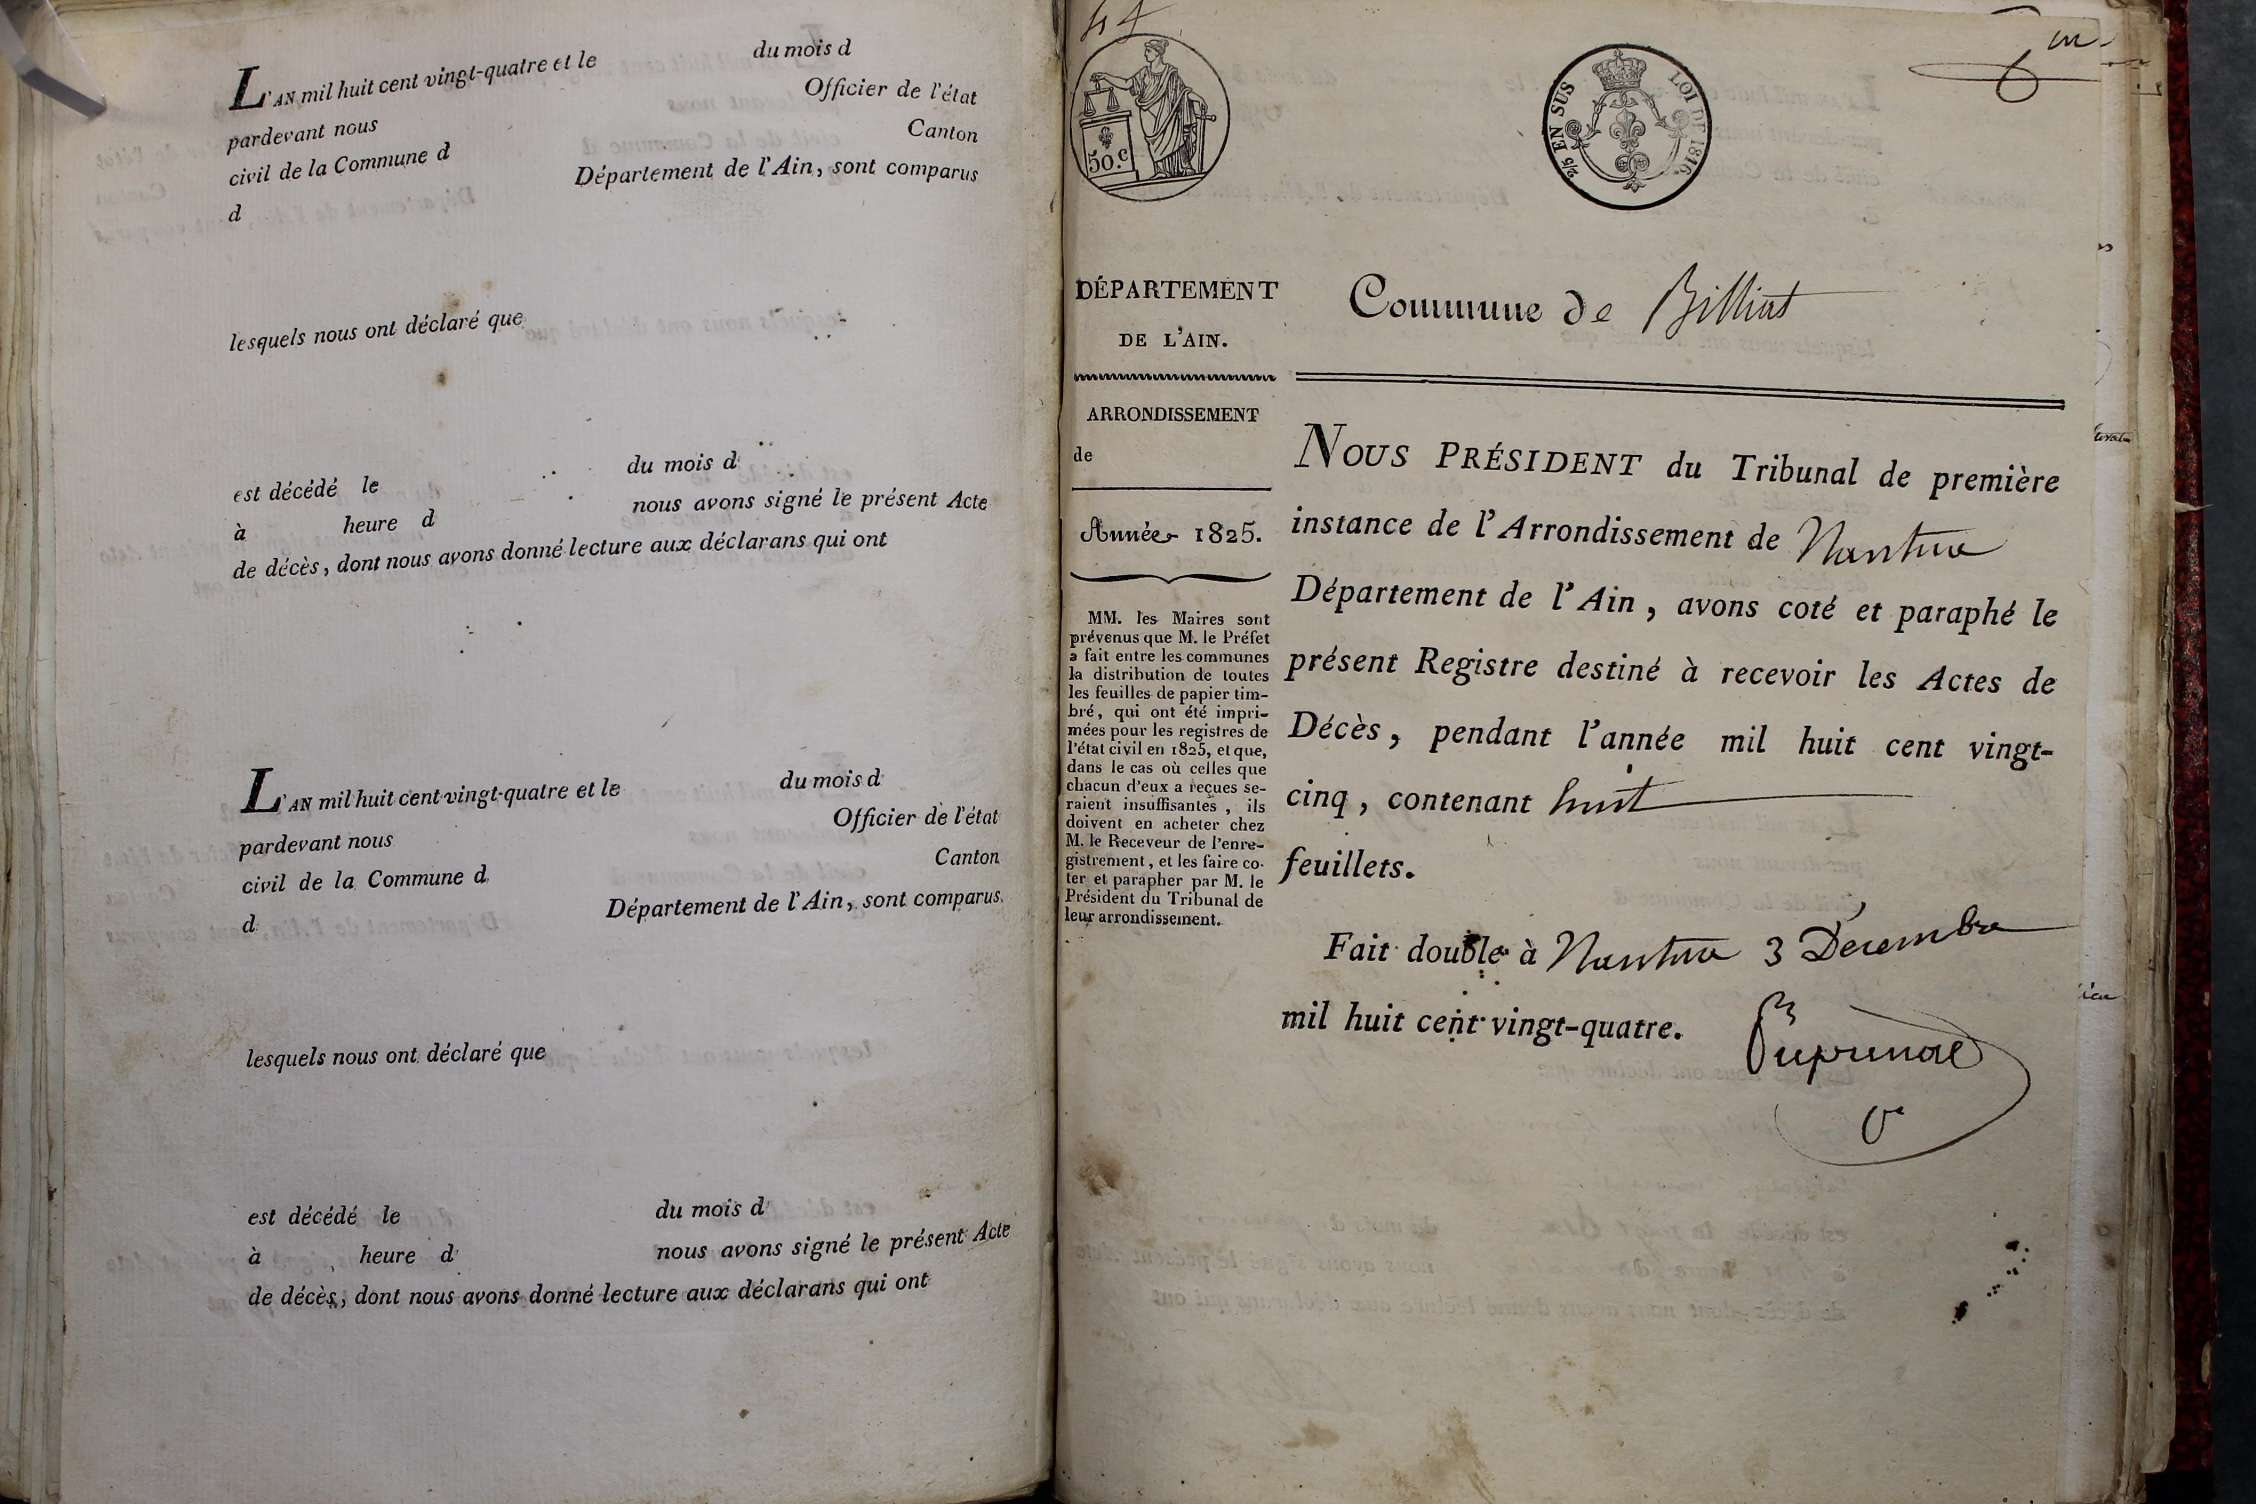 L'AN mil huit cent vingt-quatre et le du mois d
pardevant nous Officier de l'état
civil de la Commune d Canton
d Département de l'Ain, sont comparus
lesquels nous ont déclaré que
est décédé le du mois d
à heure d nous avons signé le présent Acte
de décès, dont nous avons donné lecture aux déclarans qui ont
L'AN mil huit cent vingt-quatre et le du mois d
pardevant nous Officier de l'état
civil de la Commune d Canton
d Département de l'Ain, sont comparus
lesquels nous ont déclaré que
est décédé le du mois d
à heure d nous avons signé le présent Acte
de décès, dont nous avons donné lecture aux déclarans qui ont
50.c
2/5 EN SUS LOI DE 1816.
DÉPARTEMENT
DE L'AIN.
ARRONDISSEMENT
de
Année 1825.
MM. les Maires sont
prévenus que M. le Préfet
a fait entre les communes
la distribution de toutes
les feuilles de papier tim-
bré, qui ont été impri-
mées pour les registres de
l'état civil en 1825, et que,
dans le cas où celles que
chacun d'eux a reçues se-
raient insuffisantes, ils
doivent en acheter chez
M. le Receveur de l'enre-
gistrement, et les faire co-
ter et parapher par M. le
Président du Tribunal de
leur arrondissement.
Commune de Billiat
NOUS PRÉSIDENT du Tribunal de première
instance de l'Arrondissement de Nantua
Département de l'Ain, avons coté et paraphé le
présent Registre destiné à recevoir les Actes de
Décès, pendant l'année mil huit cent vingt-
cinq, contenant huit
feuillets.
Fait double à Nantua 3 Décembre
mil huit cent vingt-quatre.